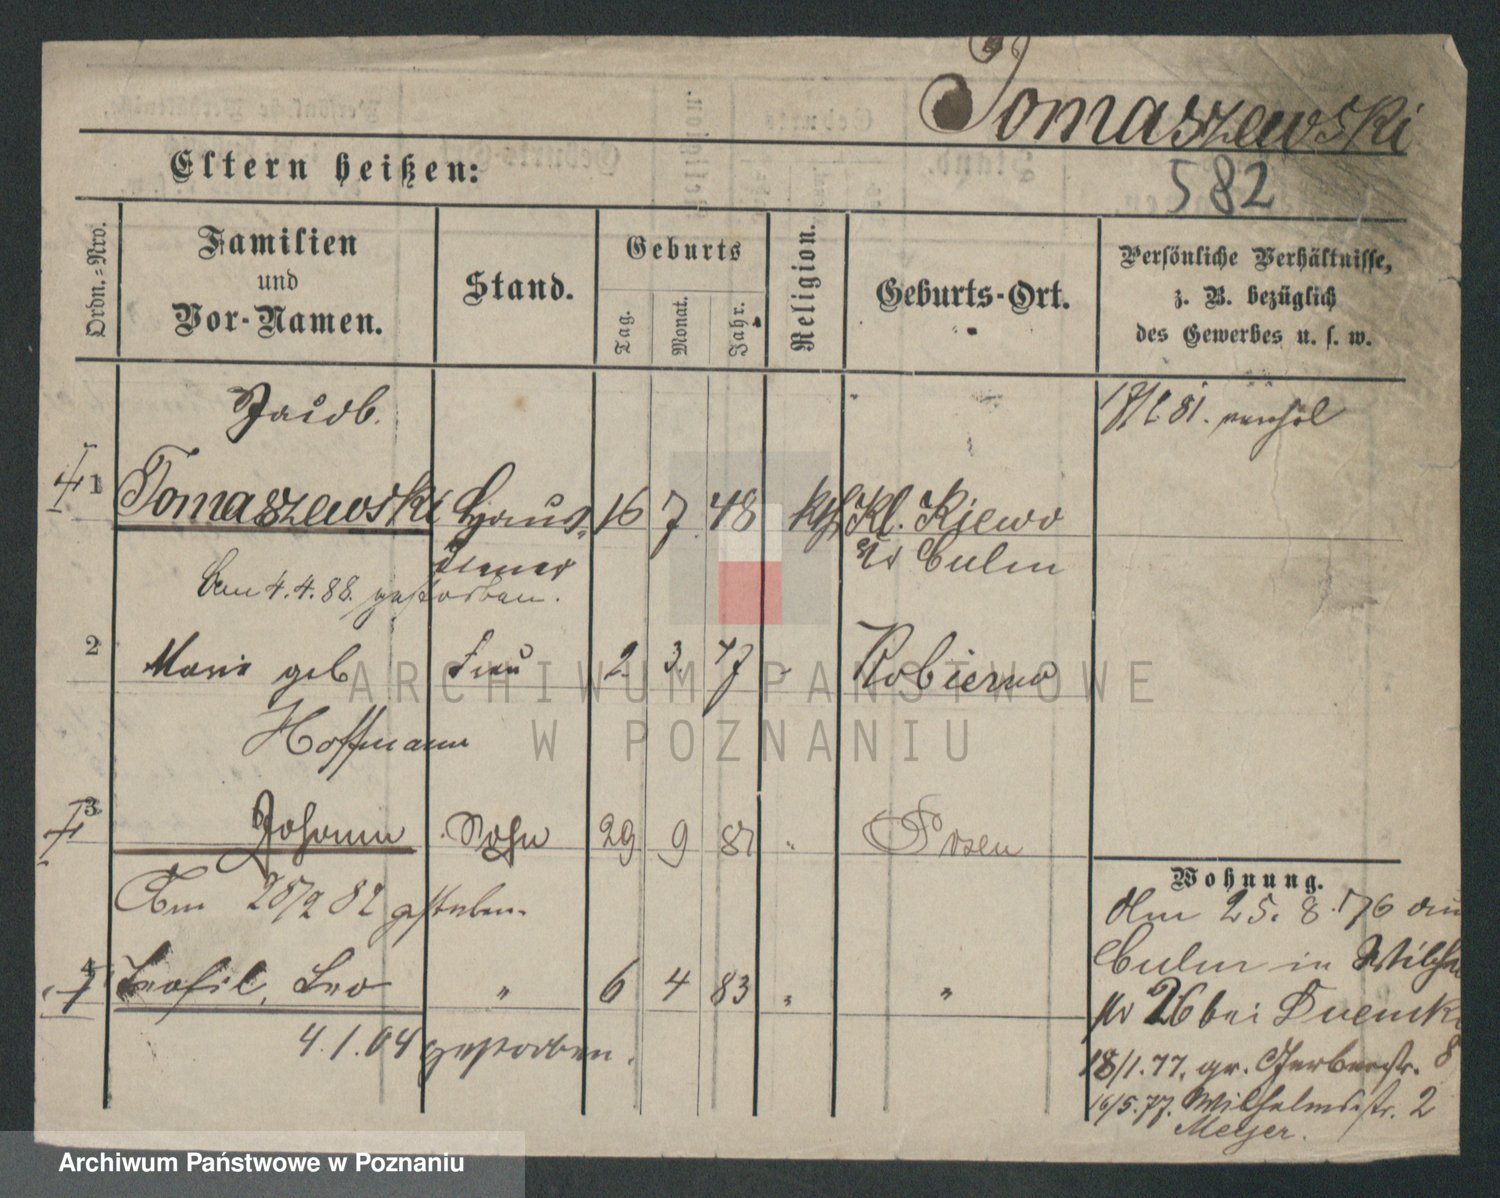 Tomaszewski
582
Eltern heißen:
Ordn.-Nro.
Familien
und
Vor-Namen.
Stand.
Geburts
Tag.
Monat.
Jahr.
Religion.
Geburts-Ort.
Persönliche Verhältnisse,
z. B. bezüglich
des Gewerbes u. s. w.
Jacob.
81.
1 Tomaszewski Haus- 16 7 48 kth Kl. Kiewo
diener Kr Culm
Am 4.4.88. gestorben.
2 Marie geb Frau 2. 3. 47 " Robierno
Hoffmann
3 Johann Sohn 29 9 81 " Posen
Am 25/2 82 gestorben.
4 Teofil, Leo " 6 4 83 " "
4.1.04 gestorben.
Wohnung.
Am 25. 8. 76 aus
Culm in Wilh
Nr 26 bei
18/1.77. gr. Gerberstr. 8
16/5.77. Wilhelmsstr. 2
Meyer.
ARCHIWUM PAŃSTWOWE
W POZNANIU
Archiwum Państwowe w Poznaniu